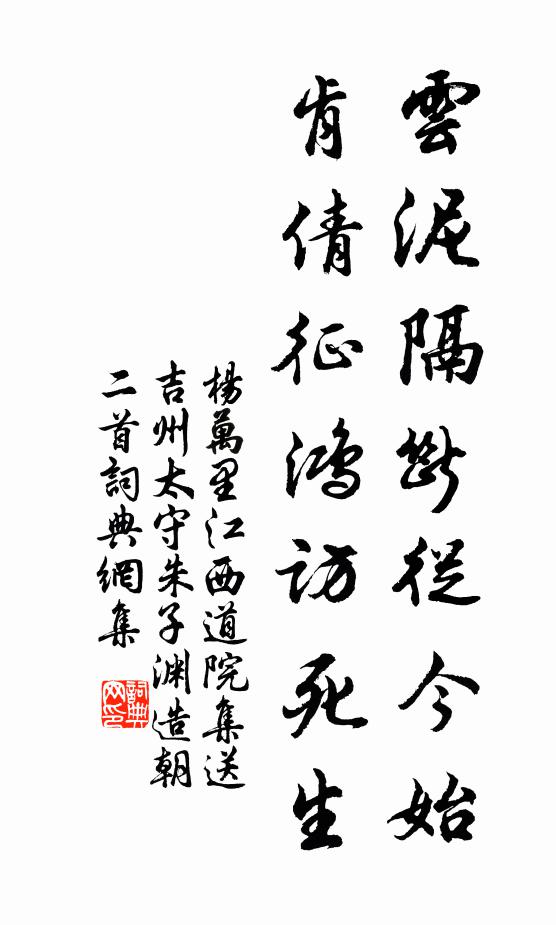 雲泥隔斷從今始
肯倩征鴻訪死生
楊萬里江西道院集送
吉州太守朱子渊造朝
二首詞典網集
詞典
网印